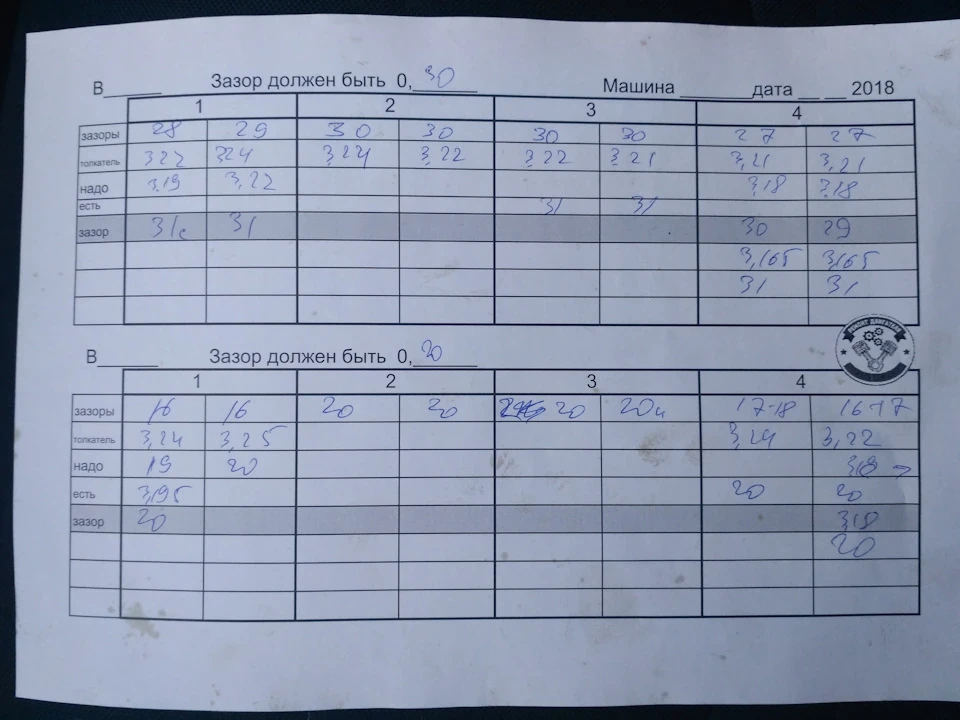 В______ Зазор должен быть 0,30 Машина _______дата __ __ 2018
1 2 3 4
зазоры 28 29 30 30 30 30 27 27
толкатель 322 324 3,24 3,22 3,22 3,21 3,21 3,21
надо 3,19 3,22 3,18 3,18
есть 31 31
зазор 31 31 30 29
3,165 3,165
31 31
В______ Зазор должен быть 0,20
1 2 3 4
зазоры 16 16 20 20 20 20 17-18 16-17
толкатель 3,24 3,25 3,24 3,22
надо 19 20 318
есть 3,195 20 20
зазор 20 318
20